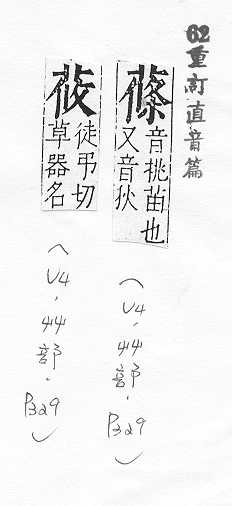 62重訂直音篇
蓧音挑苗也又音狄
（V4，艸部，P329）
莜徒弔切草器名
（V4，艸部，P329）